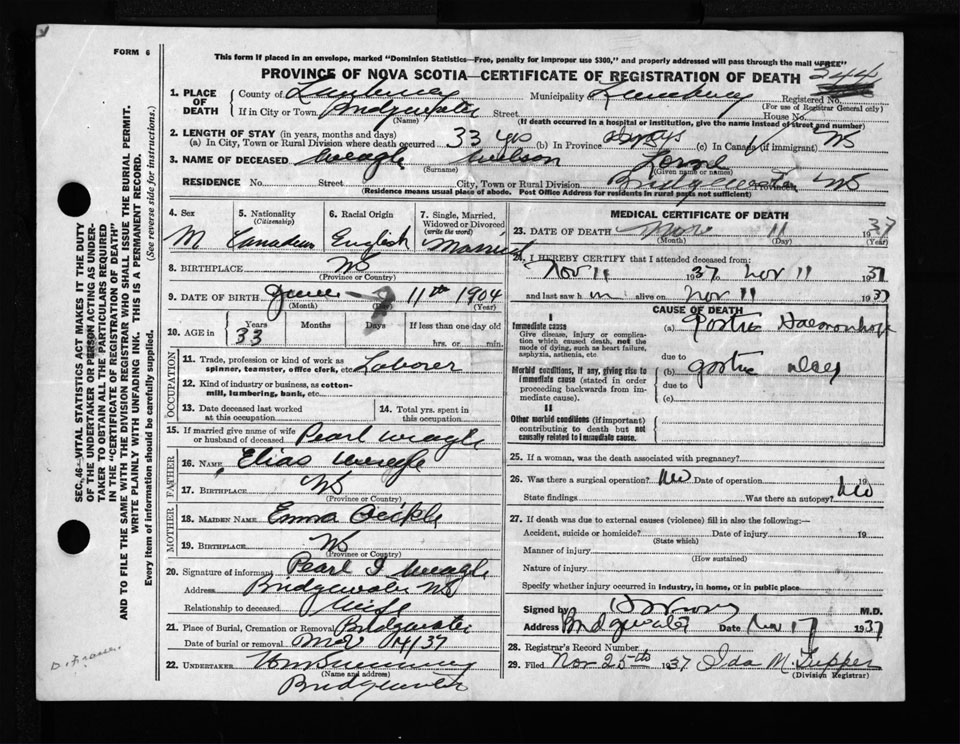 FORM 6
This form if placed in an envelope, marked "Dominion Statistics—Free, penalty for improper use $300," and properly addressed will pass through the mail "FREE"
PROVINCE OF NOVA SCOTIA—CERTIFICATE OF REGISTRATION OF DEATH
244
1. PLACE OF DEATH
County of Lunenburg Municipality of Lunenburg Registered No.
(For use of Registrar General only)
If in City or Town Bridgewater Street House No.
(Name) (If death occurred in a hospital or institution, give the name instead of street and number)
2. LENGTH OF STAY (in years, months and days)
(a) In City, Town or Rural Division where death occurred 33 yrs (b) In Province (c) In Canada (if immigrant) NS
3. NAME OF DECEASED Weagle Wilson Lorne
(Surname) (Given name or names)
RESIDENCE No. Street City, Town or Rural Division Bridgewater NS
(Residence means usual place of abode. Post Office Address for residents in rural parts not sufficient)
4. Sex M
5. Nationality (Citizenship) Canadian
6. Racial Origin English
7. Single, Married, Widowed or Divorced (write the word) Married
8. BIRTHPLACE NS
(Province or Country)
9. DATE OF BIRTH June 11th 1904
(Month) (Day) (Year)
10. AGE in Years Months Days If less than one day old
33 hrs. or min.
OCCUPATION
11. Trade, profession or kind of work as spinner, teamster, office clerk, etc. Laborer
12. Kind of industry or business, as cotton-mill, lumbering, bank, etc.
13. Date deceased last worked at this occupation
14. Total yrs. spent in this occupation
15. If married give name of wife or husband of deceased Pearl Weagle
FATHER
16. NAME Elias Weagle
17. BIRTHPLACE NS
(Province or Country)
MOTHER
18. MAIDEN NAME Emma
19. BIRTHPLACE NS
(Province or Country)
20. Signature of informant Pearl I Weagle
Address Bridgewater NS
Relationship to deceased Wife
21. Place of Burial, Cremation or Removal Bridgewater
Date of burial or removal Nov 14/37
22. UNDERTAKER
(Name and address)
Bridgewater
MEDICAL CERTIFICATE OF DEATH
23. DATE OF DEATH Nov 11 1937
(Month) (Day) (Year)
24. I HEREBY CERTIFY that I attended deceased from:
Nov 11 1937 Nov 11 1937
and last saw him alive on Nov 11 1937
CAUSE OF DEATH
I
Immediate cause
Give disease, injury or complication which caused death, not the mode of dying, such as heart failure, asphyxia, asthenia, etc.
(a) Gastric Haemorrhage
due to
Morbid conditions, if any, giving rise to immediate cause (stated in order proceeding backwards from immediate cause).
(b) gastric ulcer
due to
(c)
II
Other morbid conditions (if important) contributing to death but not causally related to immediate cause.
25. If a woman, was the death associated with pregnancy?
26. Was there a surgical operation? No Date of operation 19
State findings Was there an autopsy? No
27. If death was due to external causes (violence) fill in also the following:—
Accident, suicide or homicide? Date of injury 19
(State which)
Manner of injury
(How sustained)
Nature of injury
Specify whether injury occurred in industry, in home, or in public place
Signed by M.D.
Address Bridgewater Date Nov 17 1937
28. Registrar's Record Number
29. Filed Nov 25th 1937 Ida M Tupper
(Division Registrar)
SEC. 46—VITAL STATISTICS ACT MAKES IT THE DUTY
OF THE UNDERTAKER OR PERSON ACTING AS UNDER-
TAKER TO OBTAIN ALL THE PARTICULARS REQUIRED
IN THE "CERTIFICATE OF REGISTRATION OF DEATH"
AND TO FILE THE SAME WITH THE DIVISION REGISTRAR WHO SHALL ISSUE THE BURIAL PERMIT.
WRITE PLAINLY WITH UNFADING INK. THIS IS A PERMANENT RECORD.
Every item of information should be carefully supplied. (See reverse side for instructions.)